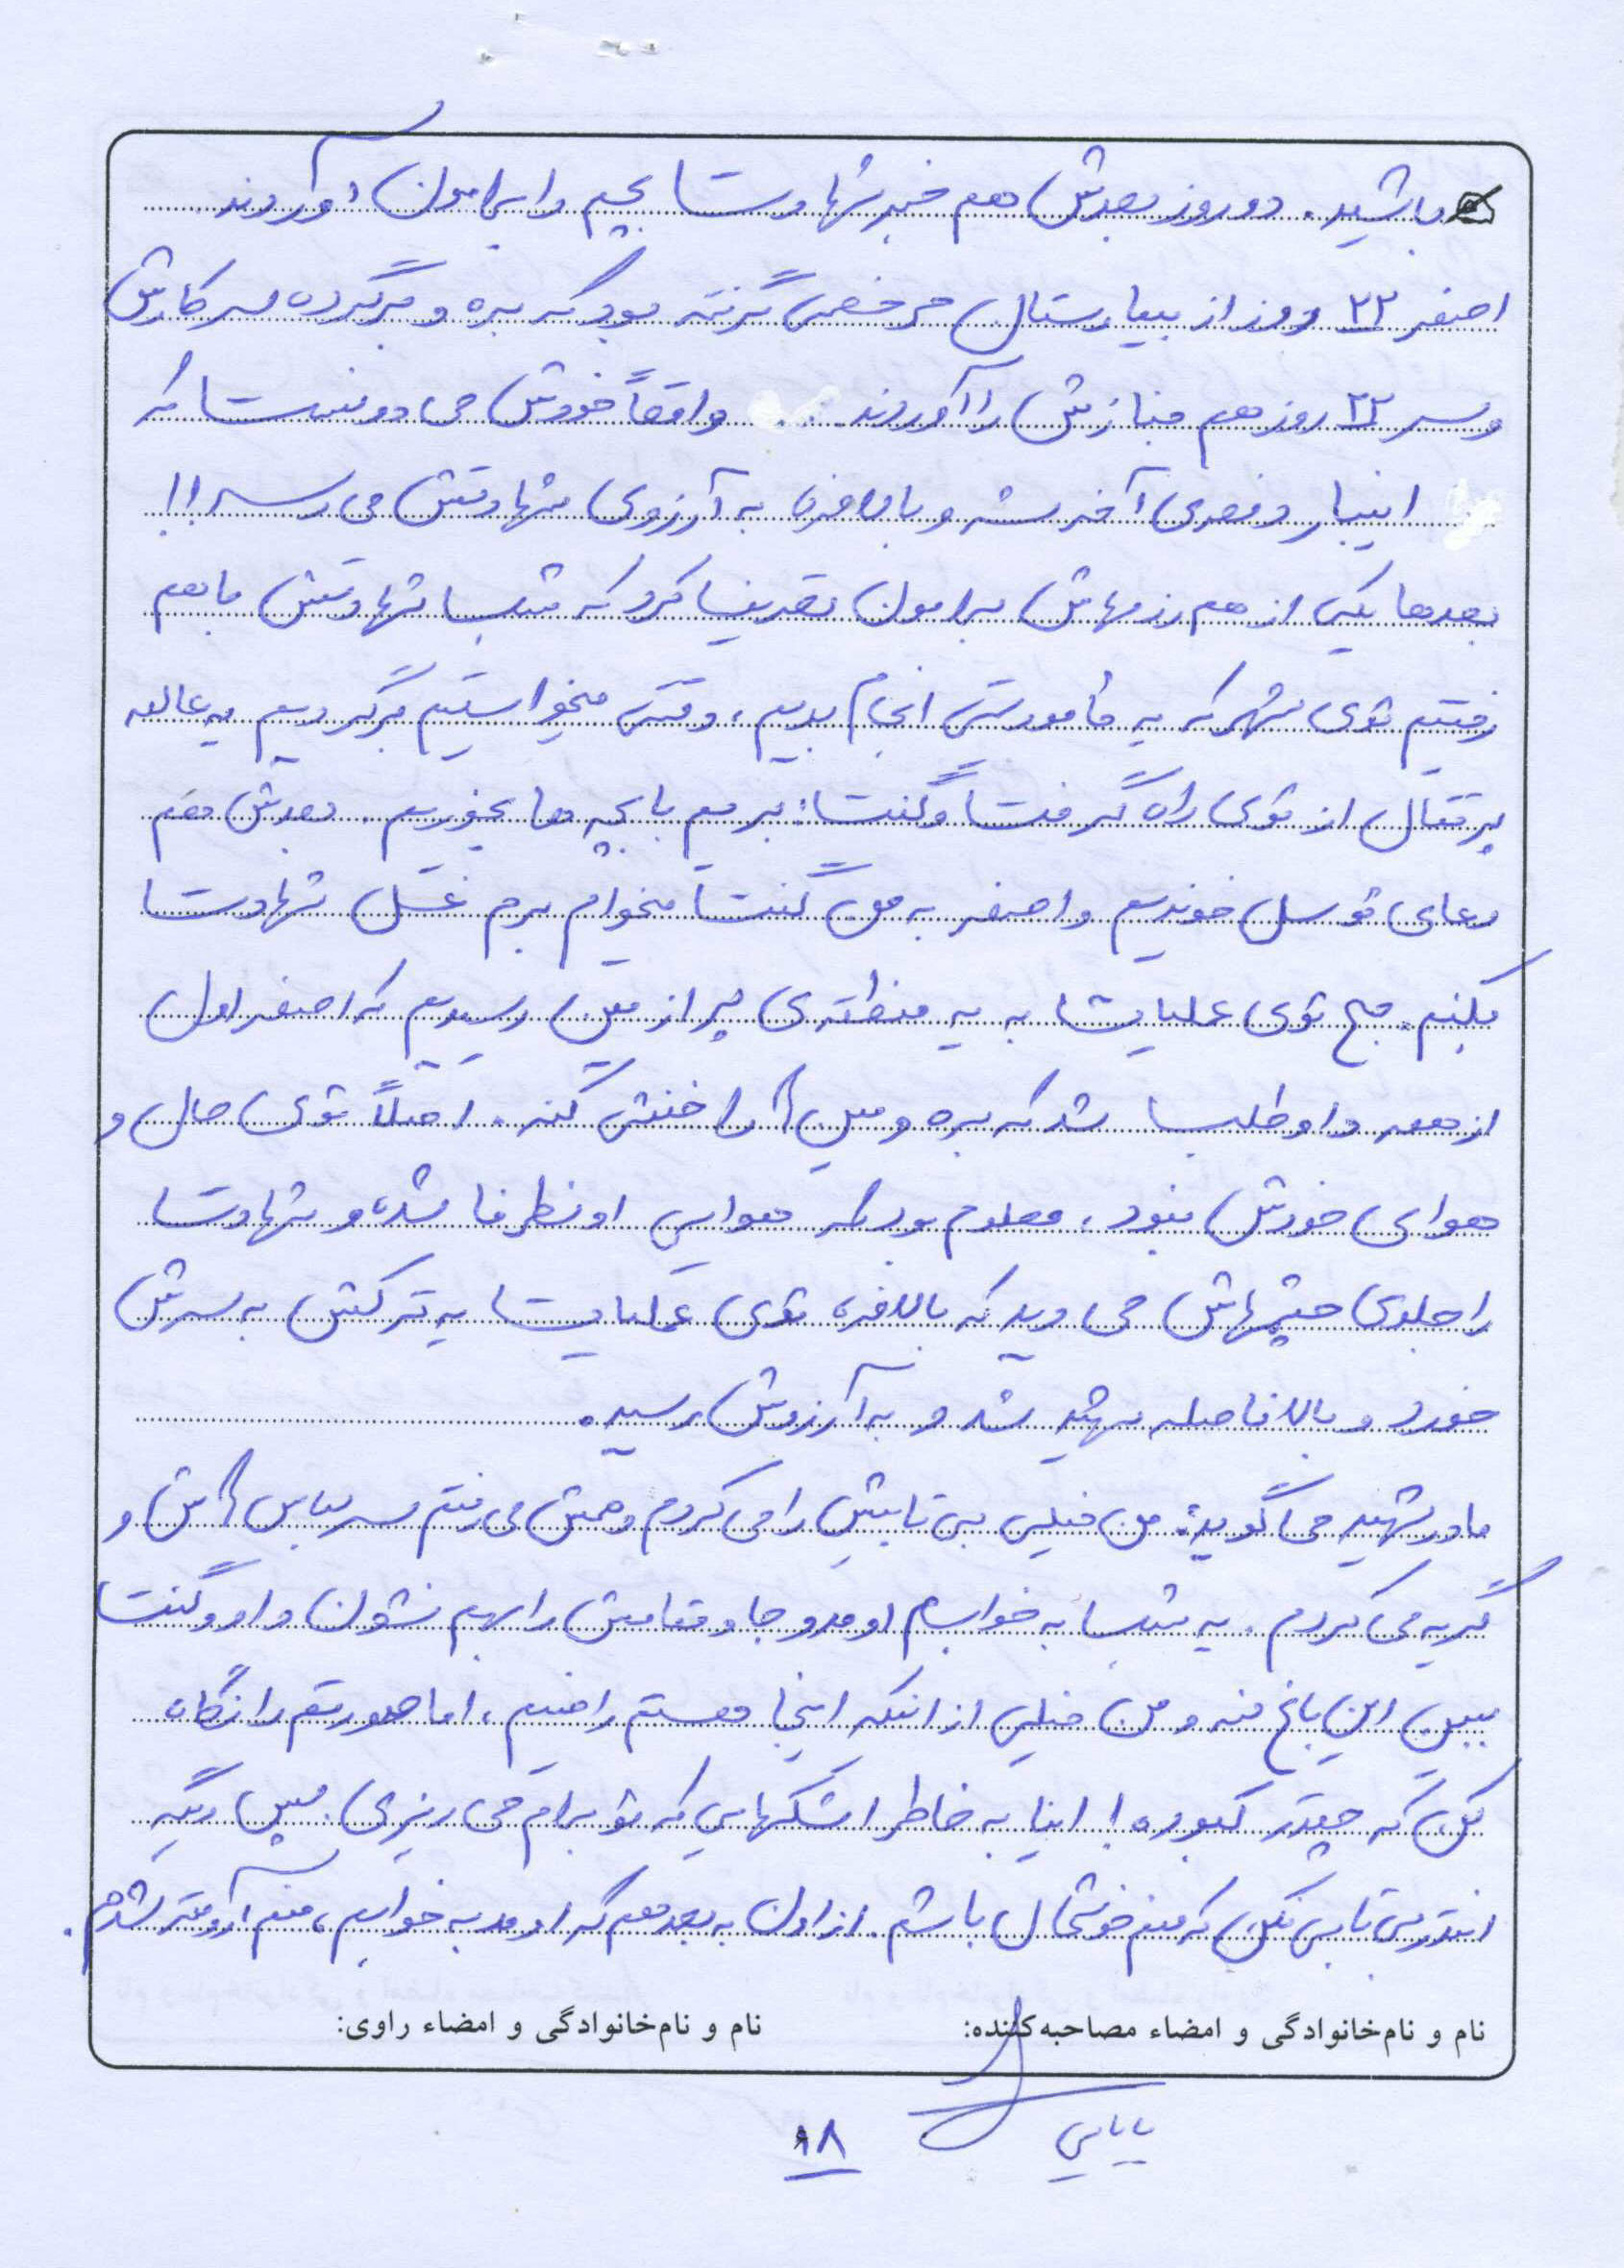 باشید. دو روز بعدش هم خبر شهادت بچم را برامون آوردند
اصغر ۲۲ روز از بیمارستان مرخصی گرفته بود که بره و برگرده سر کارش
و سر ۲۲ روز هم جنازش را آوردند. واقعاً خودش می دونست که
اینبار دفعه‌ی آخرشه و بالاخره به آرزوی شهادتش می رسه!!
بعدها یکی از هم رزمهاش برامون تعریف کرد که شب شهادتش باهم
رفتیم توی شهر که یه مأموریتی انجام بدیم، وقتی میخواستیم برگردیم یه عالمه
پرتقال از توی راه گرفت و گفت: بریم با بچه ها بخوریم. بعدش هم
دعای توسل خوندیم و اصغر به من گفت میخوام برم غسل شهادت
بکنم. صبح توی عملیات به یه منطقه‌ی پر از مین رسیدیم که اصغر اول
از همه داوطلب شد که بره و مین ها را خنثی کنه. اصلاً توی حال و
هوای خودش نبود، معلوم بود که هوایی اونطرفا شده و شهادت
را جلوی چشمهاش می دید که بالاخره توی عملیات یه ترکش به سرش
خورد و بلافاصله شهید شد و به آرزوش رسید.
مادر شهید می گوید: من خیلی بی تابیش را می کردم و همش می رفتم سر لباس هاش و
گریه می کردم. یه شب به خوابم اومد و جا و مقامش را بهم نشون داد و گفت
ببین این باغ منه و من خیلی از اینکه اینجا هستم راضیم، اما صورتم را نگاه
کن که چقدر کبوده! اینا به خاطر اشکهایی که تو برام می ریزی. پس دیگه
اینقدر بی تابی نکن که منم خوشحال باشم. از اون به بعد هم که اومد به خوابم، منم آرومتر شدم.
نام و نام‌خانوادگی و امضاء مصاحبه‌کننده:
نام و نام‌خانوادگی و امضاء راوی:
بابایی
۱۸